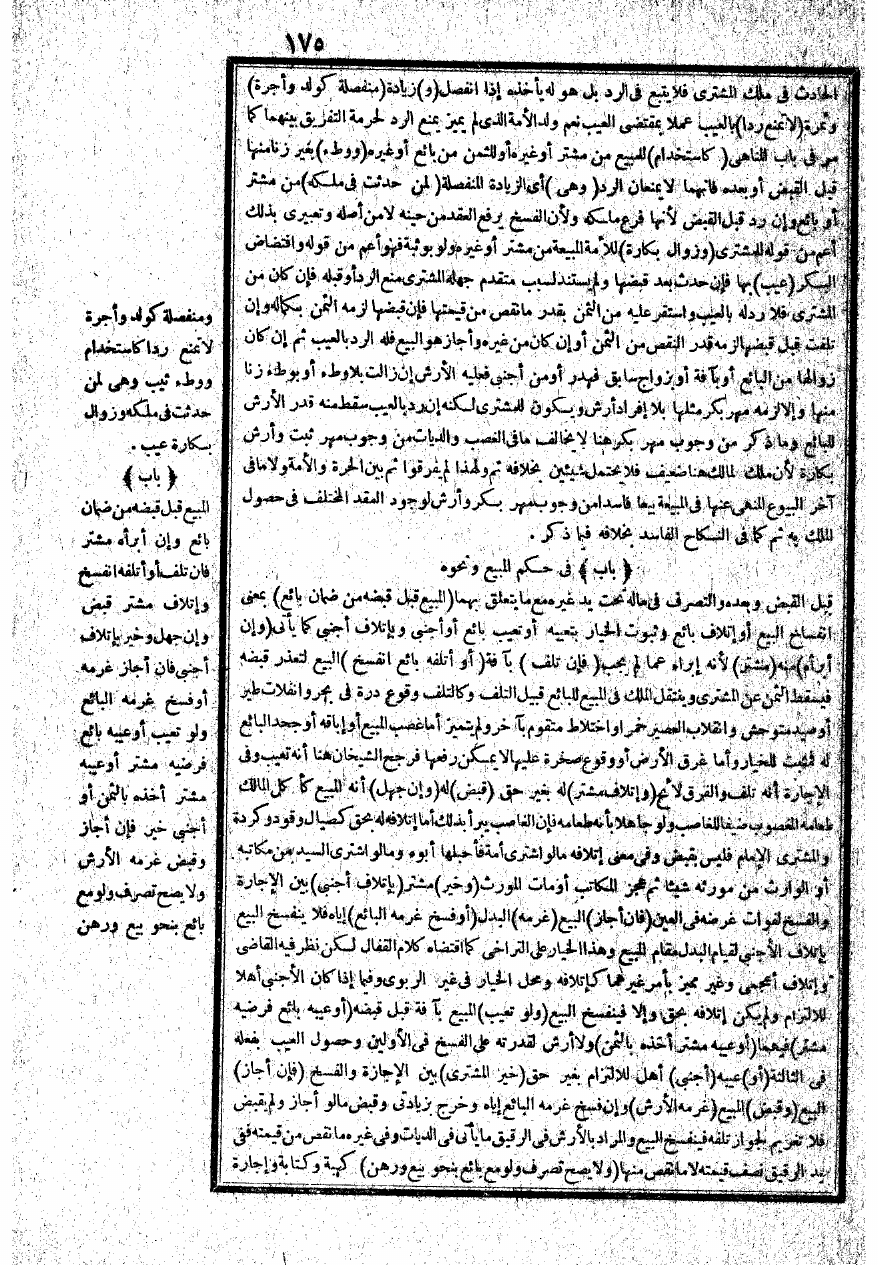 ١٧٥
الحادث فى ملك المشترى فلا يتبع فى الرد بل هو له يأخذه إذا انفصل (و) زيادة (منفصلة كولد وأجرة)
وثمرة (لا تمنع ردا) بالعيب عملا بمقتضى العيب نعم ولد الأمة الذى لم يميز يمنع الرد لحرمة التفريق بينهما كما
مر فى باب المناهى (كاستخدام) للمبيع من مشتر أو غيره أو للثمن من بائع أو غيره (ووطء) بغير زنا منها
قبل القبض أو بعده فانهما لا يمنعان الرد (وهى) أى الزيادة المنفصلة (لمن حدثت فى ملكه) من مشتر
أو بائع وإن رد قبل القبض لأنها فرع ملكه ولأن الفسخ يرفع العقد من حينه لا من أصله وتعبيرى بذلك
أعم من قوله للمشترى (وزوال بكارة) للأمة المبيعة من مشتر أو غيره ولو بوثبة فهو أعم من قوله واقتضاض
البكر (عيب) بها فإن حدث بعد قبضها ولم يستند لسبب متقدم جهله المشترى منع الرد أو قبله فإن كان من
المشترى فلا رد له بالعيب واستقر عليه من الثمن بقدر ما نقص من قيمتها فإن قبضها لزمه الثمن بكماله وإن
تلفت قبل قبضها لزمه قدر النقص من الثمن أو إن كان من غيره وأجاز هو البيع فله الرد بالعيب ثم إن كان
زوالها من البائع أو بآفة أو بزواج سابق فهدر أو من أجنبى فعليه الأرش إن زالت بلا وطء أو بوطء زنا
منها وإلا لزمه مهر بكر مثلها بلا إفراد أرش ويكون للمشترى لكنه إن رد بالعيب سقط منه قدر الأرش
للبائع وما ذكر من وجوب مهر بكر هنا لا يخالف ما فى الغصب والديات من وجوب مهر ثيب وأرش
بكارة لأن ملك المالك هنا ضعيف فلا يحتمل شيئين بخلافه ثم ولهذا لم يفرقوا ثم بين الحرة والأمة ولا ما فى
آخر البيوع المنهى عنها فى المبيعة بيعا فاسدا من وجوب مهر بكر وأرش لوجود العقد المختلف فى حصول
الملك به ثم كما فى النكاح الفاسد بخلافه فيما ذكر .
﴿ باب ﴾ فى حكم المبيع ونحوه
قبل القبض وبعده والتصرف فى ماله تحت يد غيره مع ما يتعلق بهما (المبيع قبل قبضه من ضمان بائع) بمعنى
انفساخ البيع أو إتلاف بائع وثبوت الخيار بتعيبه أو تعيب بائع أو أجنبى وبإتلاف أجنبى كما يأتى (وإن
أبرأه) منه (مشتر) لأنه إبراء عما لم يجب (فإن تلف) بآفة (أو أتلفه بائع انفسخ) البيع لتعذر قبضه
فيسقط الثمن عن المشترى وينتقل الملك فى المبيع للبائع قبيل التلف وكالتلف وقوع درة فى بحر وانفلات طير
أو صيد متوحش وانقلاب العصير خمرا واختلاط متقوم بآخر ولم يتميز أما غصب المبيع أو إباقه أو جحد البائع
له فمثبت للخيار وأما غرق الأرض أو وقوع صخرة عليها لا يمكن رفعها فرجح الشيخان هنا أنه تعيب وفى
الإجارة أنه تلف والفرق لائح (وإتلاف مشتر) له بغير حق (قبض) له (وإن جهل) أنه المبيع كأكل المالك
طعامه المغصوب ضيفا للغاصب ولو جاهلا بأنه طعامه فإن الغاصب يبرأ بذلك أما إتلافه له بحق كصيال وقود وكردة
والمشترى الإمام فليس بقبض وفى معنى إتلافه ما لو اشترى أمة فأحبلها أبوه وما لو اشترى السيد من مكاتبه
أو الوارث من مورثه شيئا ثم عجز المكاتب أو مات المورث (وخير) مشتر (بإتلاف أجنبى) بين الإجارة
والفسخ لفوات غرضه فى العين (فان أجاز) البيع (غرمه) البدل (أو فسخ غرمه البائع) إياه فلا ينفسخ البيع
بإتلاف الأجنبى لقيام البدل مقام المبيع وهذا الخيار على التراخى كما اقتضاه كلام القفال لكن نظر فيه القاضى
وإتلاف أعجمى وغير مميز بأمر غيرهما كإتلافه ومحل الخيار فى غير الربوى وفيما إذا كان الأجنبى أهلا
للالتزام ولم يكن إتلافه بحق وإلا فينفسخ البيع (ولو تعيب) المبيع بآفة قبل قبضه (أو عيبه بائع فرضيه
مشتر) فيهما (أو عيبه مشتر أخذه بالثمن) ولا أرش لقدرته على الفسخ فى الأولين وحصول العيب بفعله
فى الثالثة (أو) عيبه (أجنبى) أهل للالتزام بغير حق (خير المشترى) بين الإجازة والفسخ (فإن أجاز)
البيع (وقبض) المبيع (غرمه الأرش) وإن فسخ غرمه البائع إياه وخرج بزيادتى وقبض ما لو أجاز ولم يقبض
فلا تغريم لجواز تلفه فينفسخ البيع والمراد بالأرش فى الرقيق ما يأتى فى الديات وفى غيره ما نقص من قيمته ففى
يد الرقيق نصف قيمته لا ما نقص منها (ولا يصح تصرف ولو مع بائع بنحو بيع ورهن) كهبة وكتابة وإجارة
ومنفصلة كولد وأجرة
لا تمنع ردا كاستخدام
ووطء ثيب وهى لمن
حدثت فى ملكه وزوال
بكارة عيب .
﴿ باب ﴾
المبيع قبل قبضه من ضمان
بائع وإن أبرأه مشتر
فان تلف أو أتلفه انفسخ
وإتلاف مشتر قبض
وإن جهل وخير بإتلاف
أجنبى فان أجاز غرمه
أو فسخ غرمه البائع
ولو تعيب أو عيبه بائع
فرضيه مشتر أو عيبه
مشتر أخذه بالثمن أو
أجنبى خير فإن أجاز
وقبض غرمه الأرش
ولا يصح تصرف ولو مع
بائع بنحو بيع ورهن